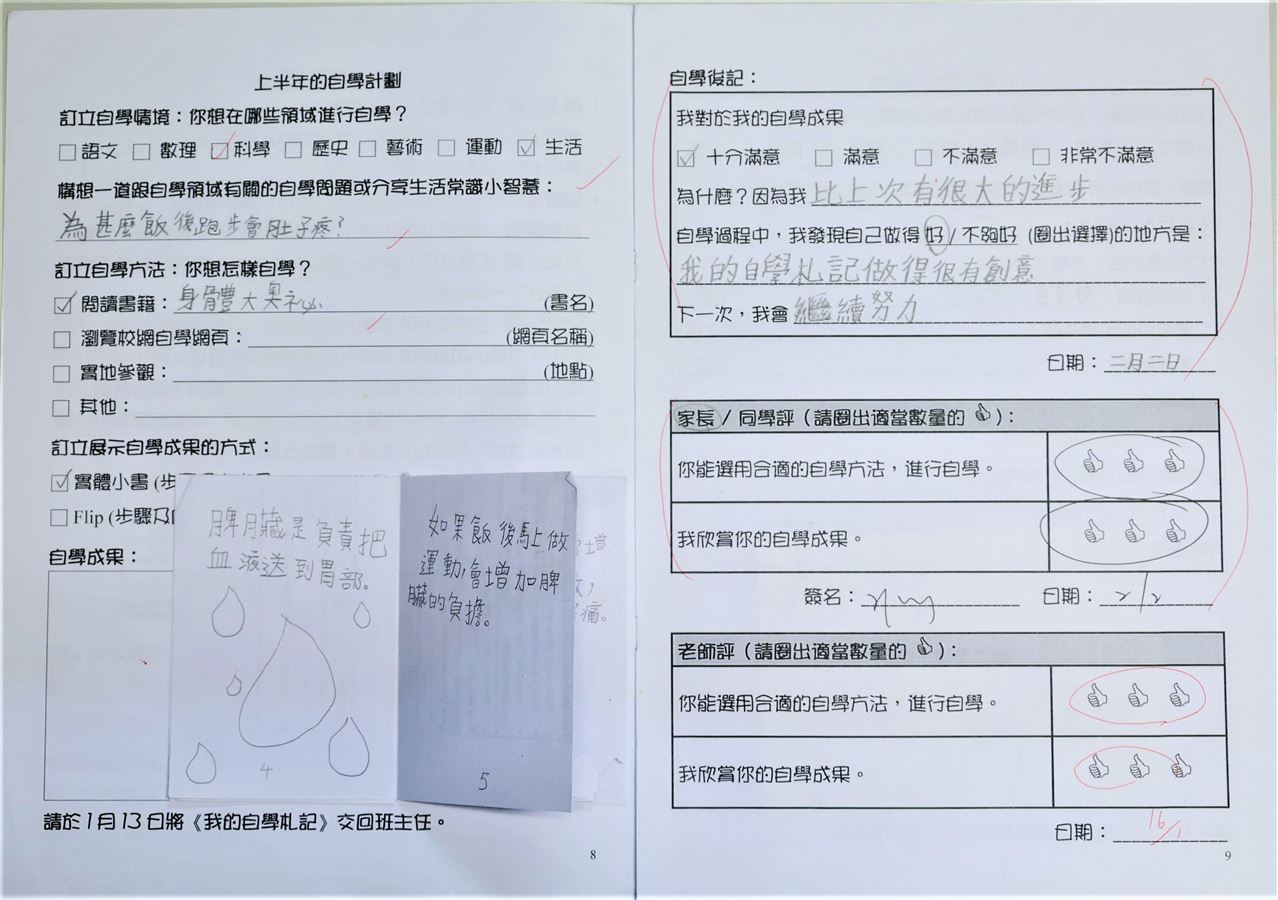 上半年的自學計劃
訂立自學情境：你想在哪些領域進行自學？
☐語文 ☐數理 ☑科學 ☐歷史 ☐藝術 ☐運動 ☑生活
構想一道跟自學領域有關的自學問題或分享生活常識小智慧：
為甚麼飯後跑步會肚子疼？
訂立自學方法：你想怎樣自學？
☑閱讀書籍：身體大奧祕 (書名)
☐瀏覽校網自學網頁： (網頁名稱)
☐實地參觀： (地點)
☐其他：
訂立展示自學成果的方式：
☑實體小書 (步
☐Flip (步驟及
自學成果：
脾臟是負責把
血液送到胃部。
4
如果飯後馬上做
運動，會增加脾
臟的負擔。
5
增
痛。
請於1月13日將《我的自學札記》交回班主任。
8
自學後記：
我對於我的自學成果
☑十分滿意 ☐滿意 ☐不滿意 ☐非常不滿意
為什麼？因為我比上次有很大的進步
自學過程中，我發現自己做得好/不夠好 (圈出選擇)的地方是：
我的自學札記做得很有創意
下一次，我會繼續努力
日期：二月二日
家長 / 同學評（請圈出適當數量的 👍）：
你能選用合適的自學方法，進行自學。 👍 👍 👍
我欣賞你的自學成果。 👍 👍 👍
簽名： 日期：2/2
老師評（請圈出適當數量的 👍）：
你能選用合適的自學方法，進行自學。 👍 👍 👍
我欣賞你的自學成果。 👍 👍 👍
日期：16/1
9